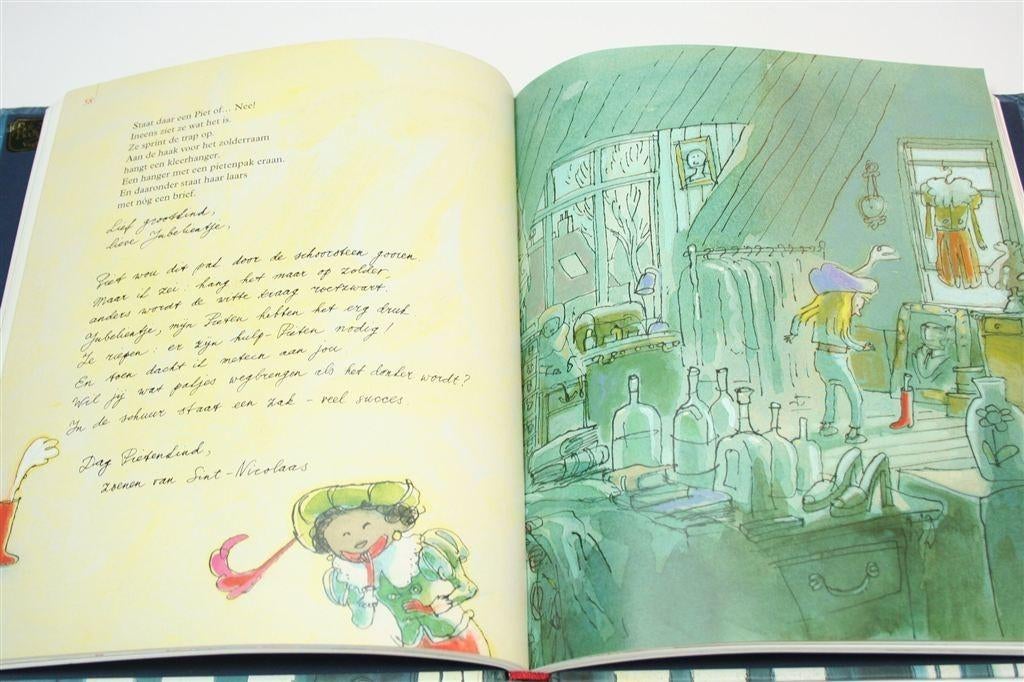 58
Staat daar een Piet of... Nee!
Ineens ziet ze wat het is.
Ze sprint de trap op.
Aan de haak voor het zolderraam
hangt een kleerhanger.
Een hanger met een pietenpak eraan.
En daaronder staat haar laars
met nóg een brief.
Lief grootkind,
lieve Jubelientje,
Piet wou dit pak door de schoorsteen gooien.
Maar ik zei: hang het maar op zolder
anders wordt de witte kraag roetzwart.
Jubelientje, mijn Pieten hebben het erg druk.
Ze riepen: er zijn hulp-Pieten nodig!
En toen dacht ik meteen aan jou.
Wil jij wat pakjes wegbrengen als het donker wordt?
In de schuur staat een zak - veel succes.
Dag Pietenkind,
zoenen van Sint-Nicolaas